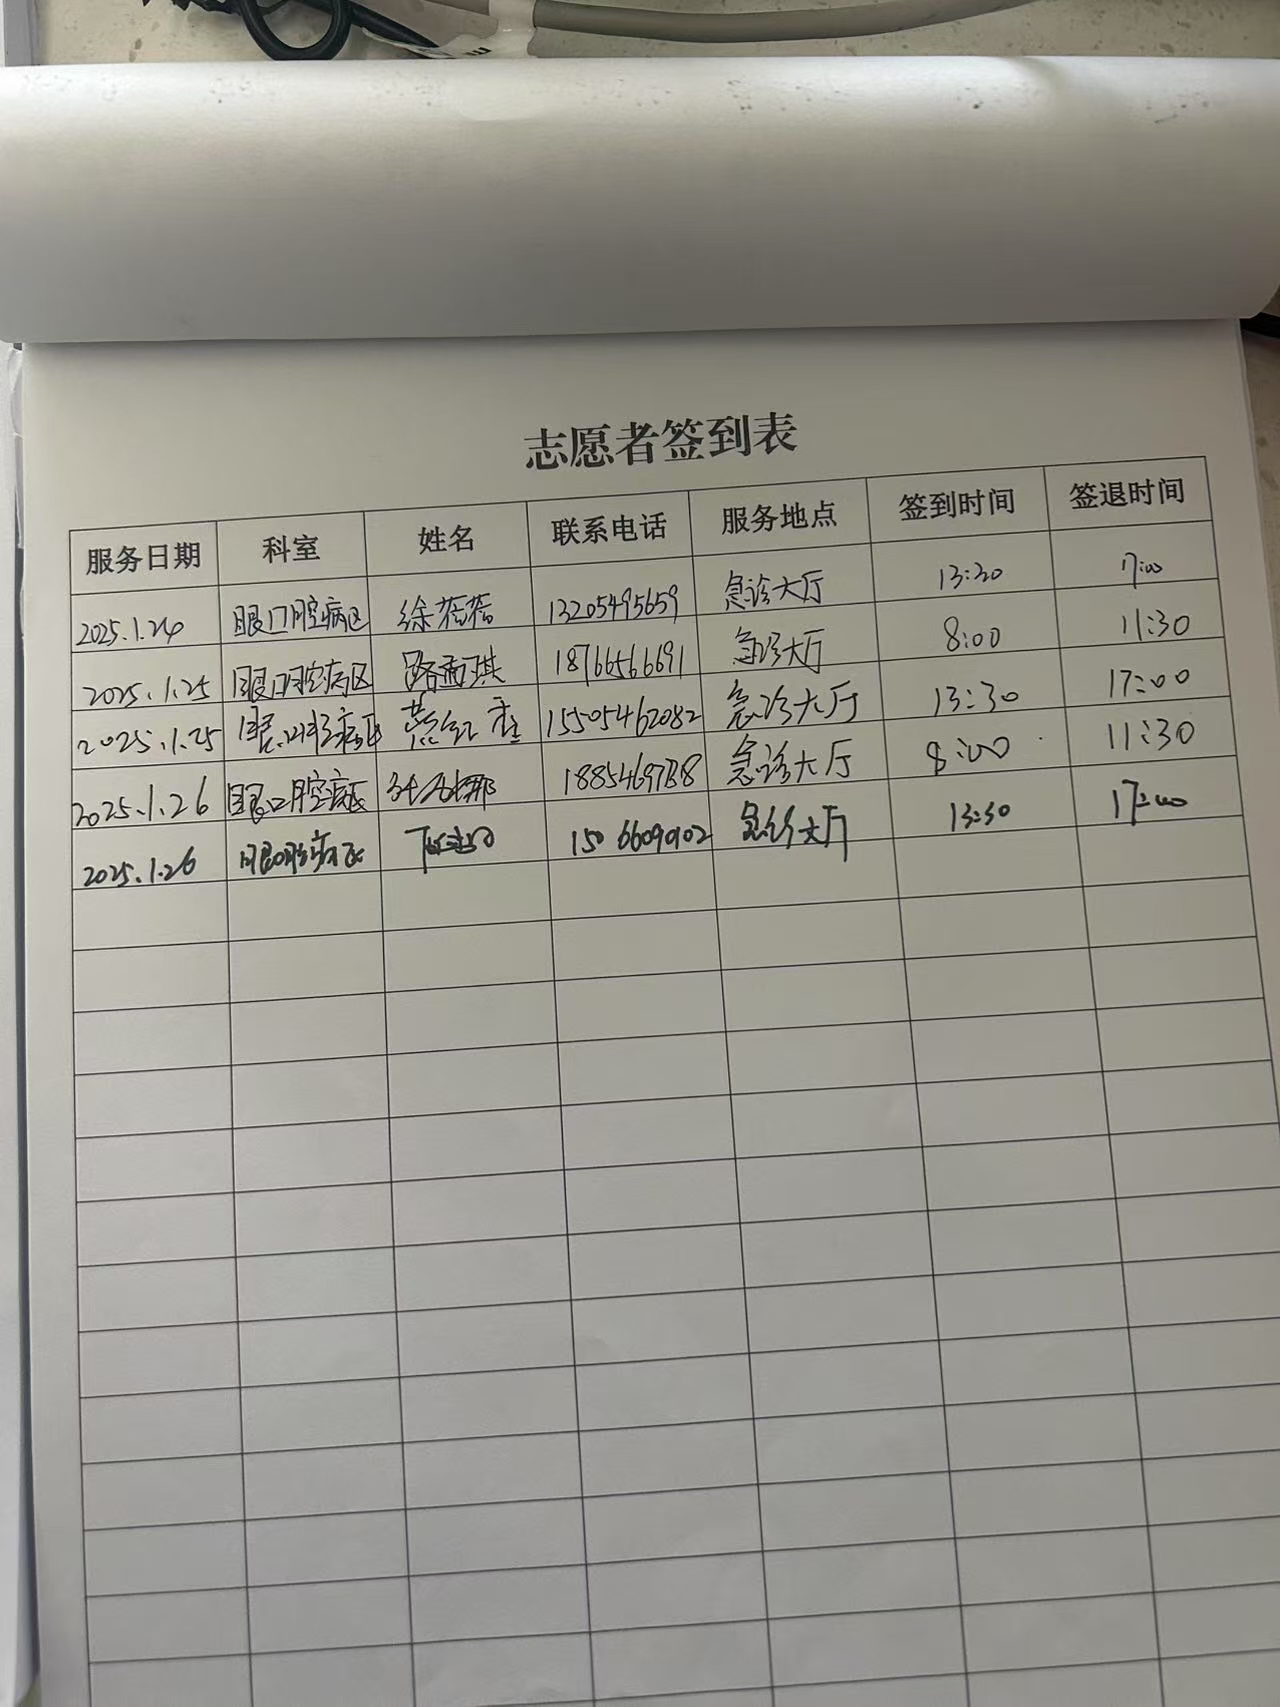 志愿者签到表
服务日期 科室 姓名 联系电话 服务地点 签到时间 签退时间
2025.1.24 眼口腔病区 徐蓓蓓 13205495659 急诊大厅 13:30 17:00
2025.1.25 眼口腔病区 路雨琪 18766566691 急诊大厅 8:00 11:30
2025.1.25 眼口腔病区 15505462082 急诊大厅 13:30 17:00
2025.1.26 眼口腔病区 急诊大厅 8:00 11:30
2025.1.26 眼口腔病区 15066090102 急诊大厅 13:30 17:00